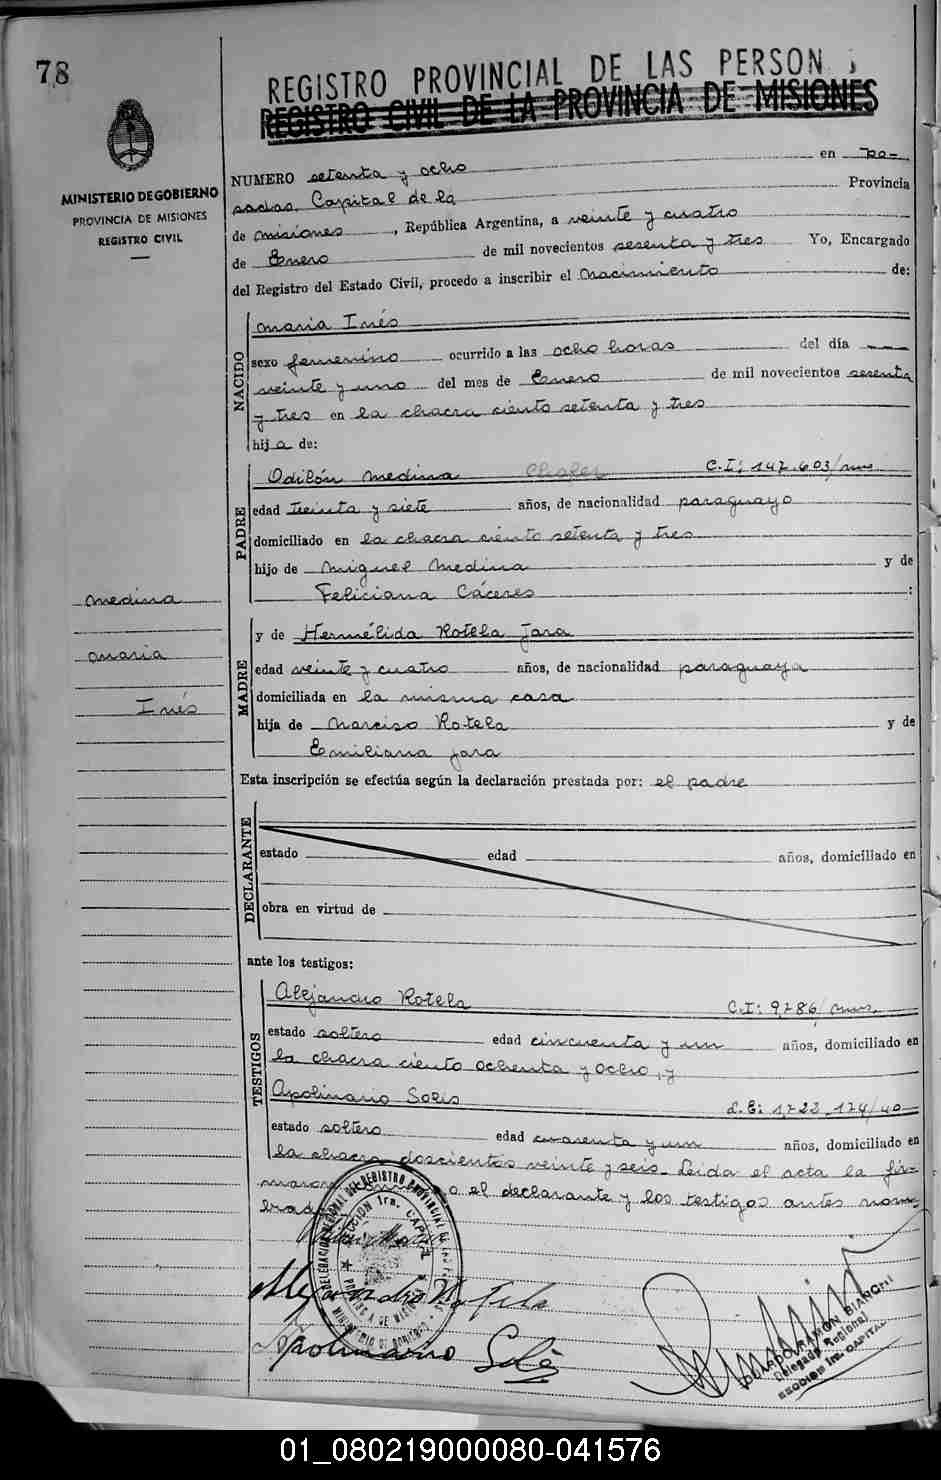 78
REGISTRO PROVINCIAL DE LAS PERSON S
REGISTRO CIVIL DE LA PROVINCIA DE MISIONES
MINISTERIO DE GOBIERNO
PROVINCIA DE MISIONES
REGISTRO CIVIL
NUMERO setenta y ocho en Po-
sadas, Capital de la Provincia
de Misiones, República Argentina, a veinte y cuatro
de Enero de mil novecientos sesenta y tres Yo, Encargado
del Registro del Estado Civil, procedo a inscribir el Nacimiento de:
NACIDO
Maria Inés
sexo femenino ocurrido a las ocho horas del día
veinte y uno del mes de Enero de mil novecientos sesenta
y tres en la chacra ciento setenta y tres
hija de:
PADRE
Odilón Medina Chofer C.I: 147.603/mns
edad treinta y siete años, de nacionalidad paraguayo
domiciliado en la chacra ciento setenta y tres
hijo de Miguel Medina y de
Feliciana Cáceres :
Medina
Maria
Inés
MADRE
y de Hermélida Rotela Jara
edad veinte y cuatro años, de nacionalidad paraguaya
domiciliada en la misma casa
hija de Narciso Rotela y de
Emiliana Jara
Esta inscripción se efectúa según la declaración prestada por: el padre
DECLARANTE
estado edad años, domiciliado en
obra en virtud de
ante los testigos:
TESTIGOS
Alejandro Rotela C.I: 9286/mns.
estado soltero edad cincuenta y un años, domiciliado en
la chacra ciento ochenta y ocho, y
Apolinario Solis L.E: 1723.124/40
estado soltero edad cuarenta y un años, domiciliado en
la chacra doscientos veinte y seis. Leida el acta la fir-
maron o el declarante y los testigos antes nom-
brad
Alejandro Rotela
Apolinario Solis
RAMON BIANCHI
Delegado Regional
SECCION 1ra. CAPITAL
01_080219000080-041576